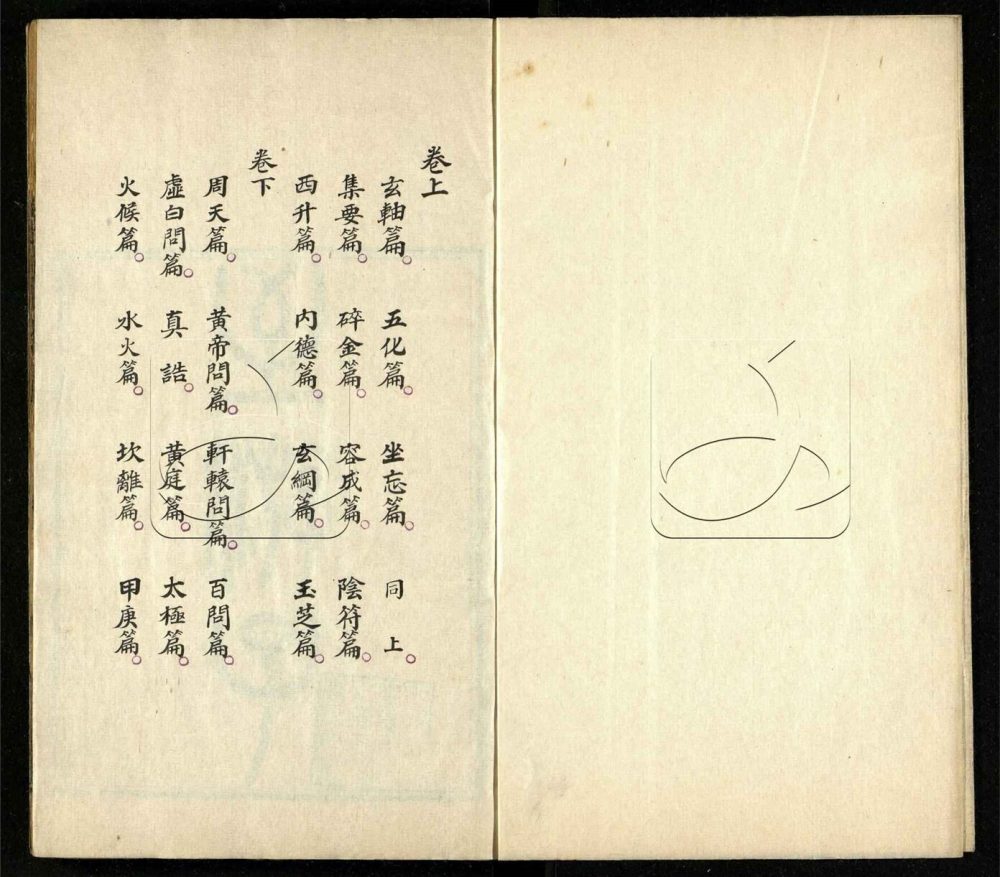 卷上
玄軸篇 五化篇 坐忘篇 同上
集要篇 碎金篇 容成篇 陰符篇
西升篇 内德篇 玄綱篇 玉芝篇
卷下
周天篇 黄帝問篇 軒轅問篇 百問篇
虛白問篇 真誥 黄庭篇 太極篇
火候篇 水火篇 坎離篇 甲庚篇